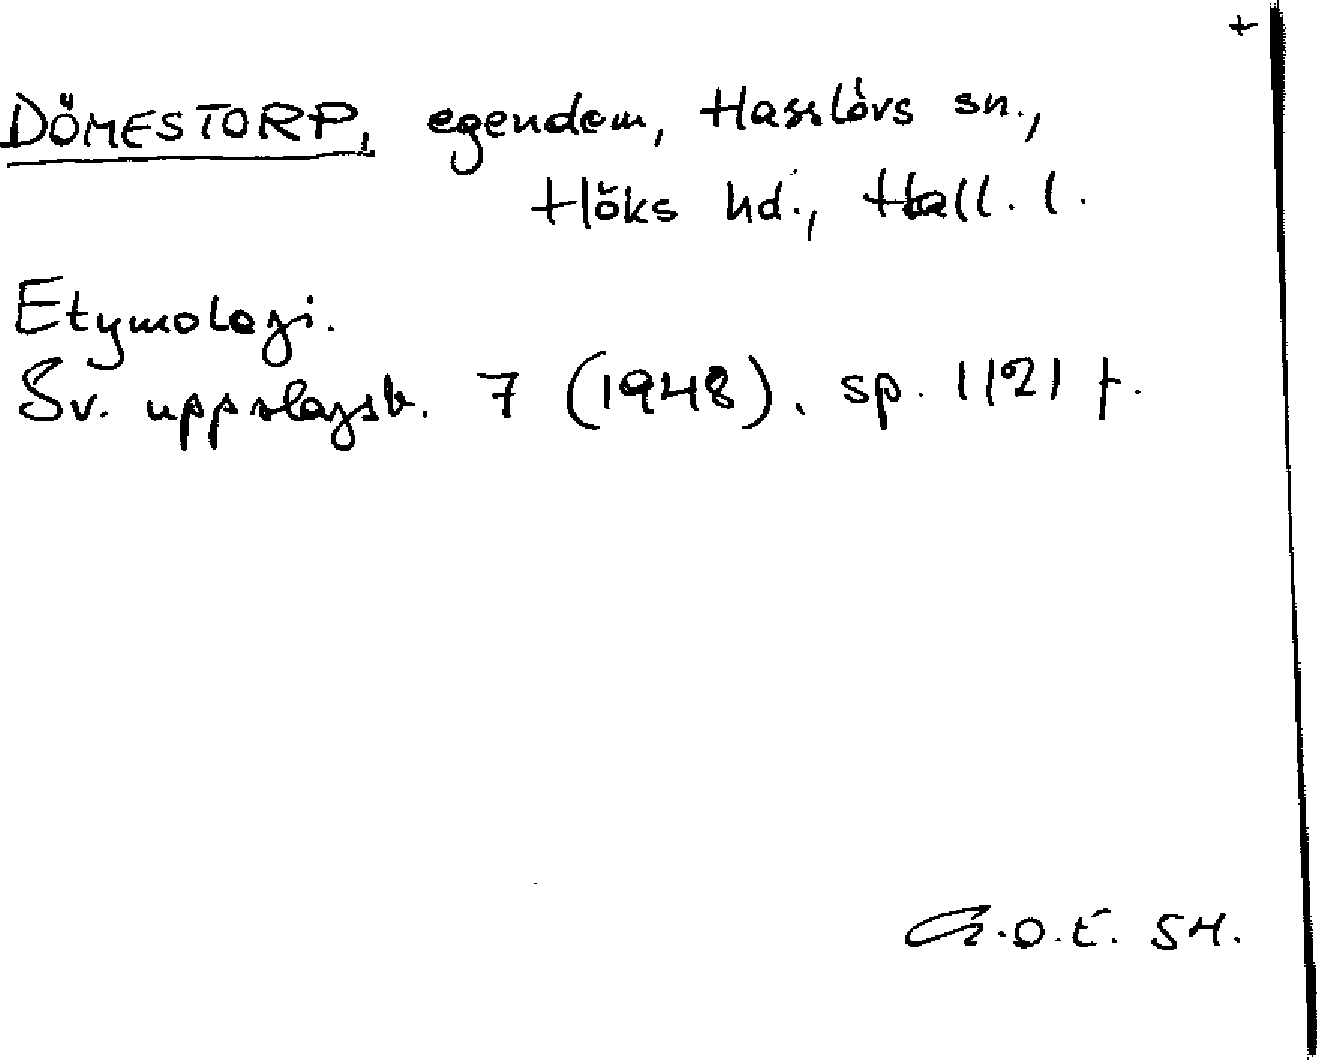 +
DÖMESTORP, egendom, Hasslövs sn.,
Höks hd., Hall. l.
Etymologi.
Sv. uppslagsb. 7 (1948), sp. 1121 f.
G.O.E. 54.